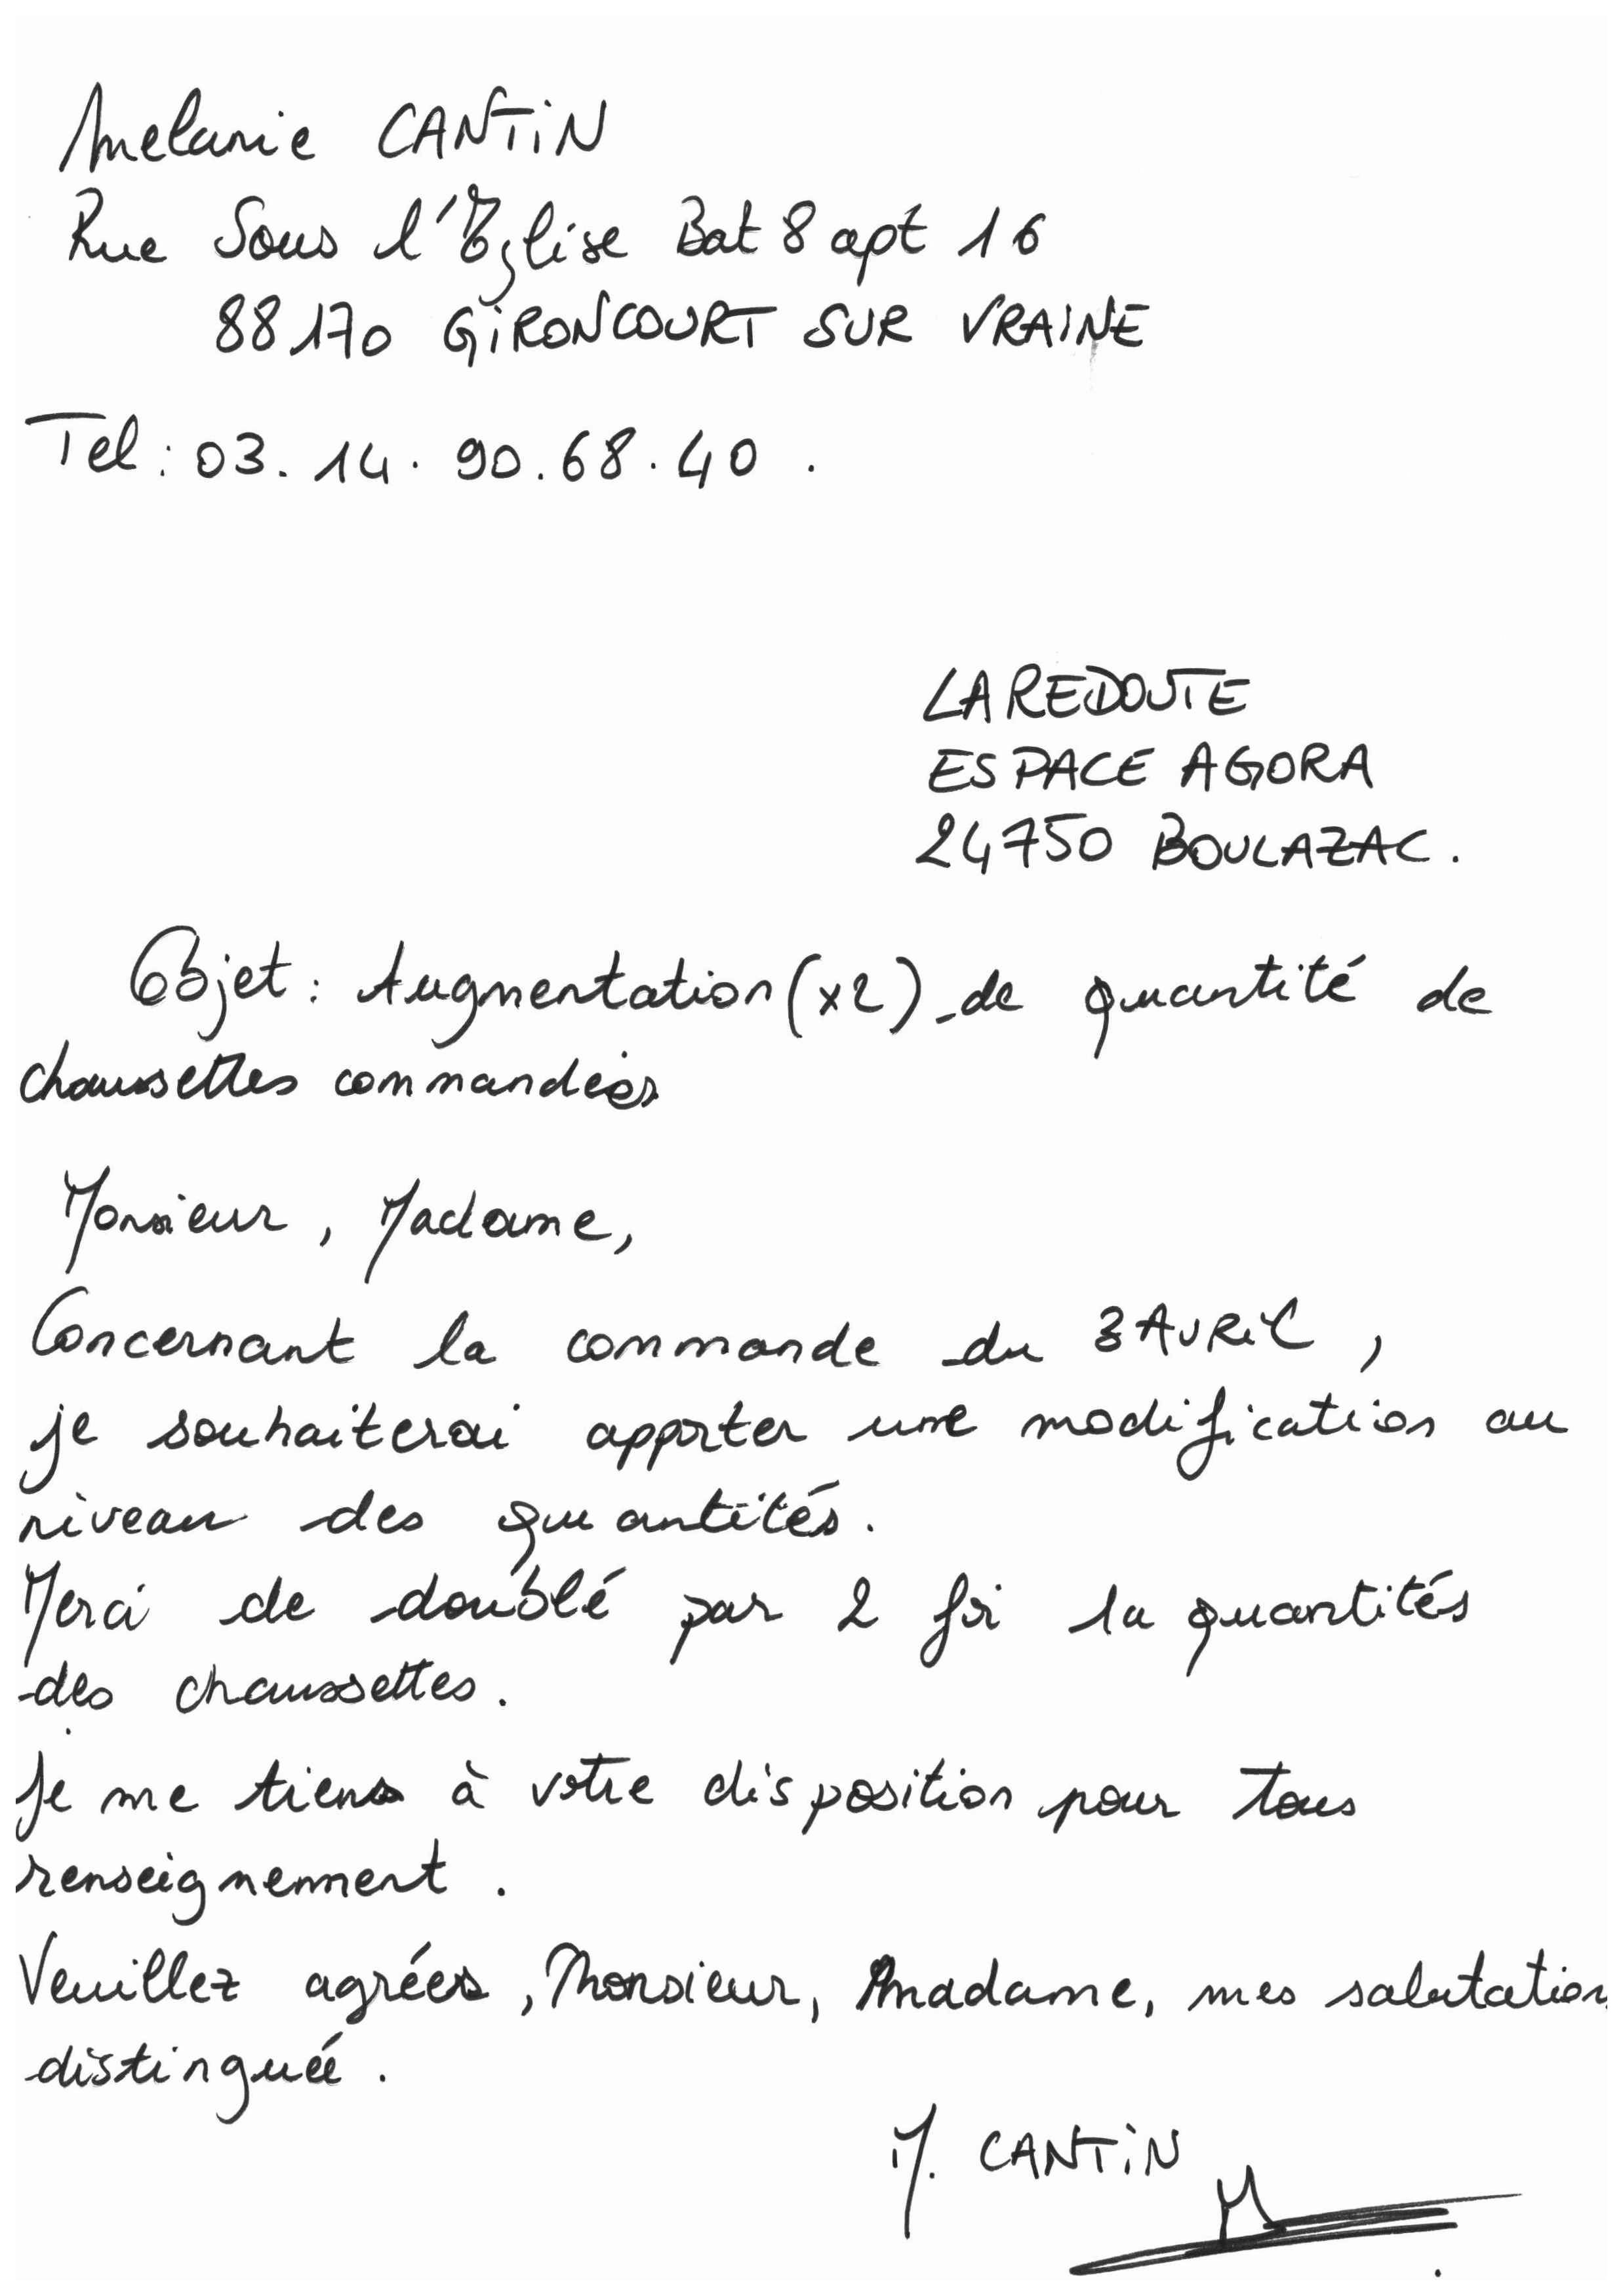 Melanie CANTiN
Rue Sous l'Eglise Bat 8 apt 16
88170 GiRONCOURT SUR VRAINE
Tel : 03. 14. 90. 68. 40 .
LA REDOUTE
ESPACE AGORA
24750 BOULAZAC.
Objet : Augmentation (x2) de quantité de
chaussettes commandées
Monsieur, Madame,
Concernant la commande du 3 AVRiL ,
je souhaiterai apporter une modification au
niveau des quantités.
Merci de doublé par 2 foi la quantités
des chaussettes.
Je me tiens à votre disposition pour tous
renseignement .
Veuillez agréer, Monsieur, Madame, mes salutation
distinguée .
M. CANTiN